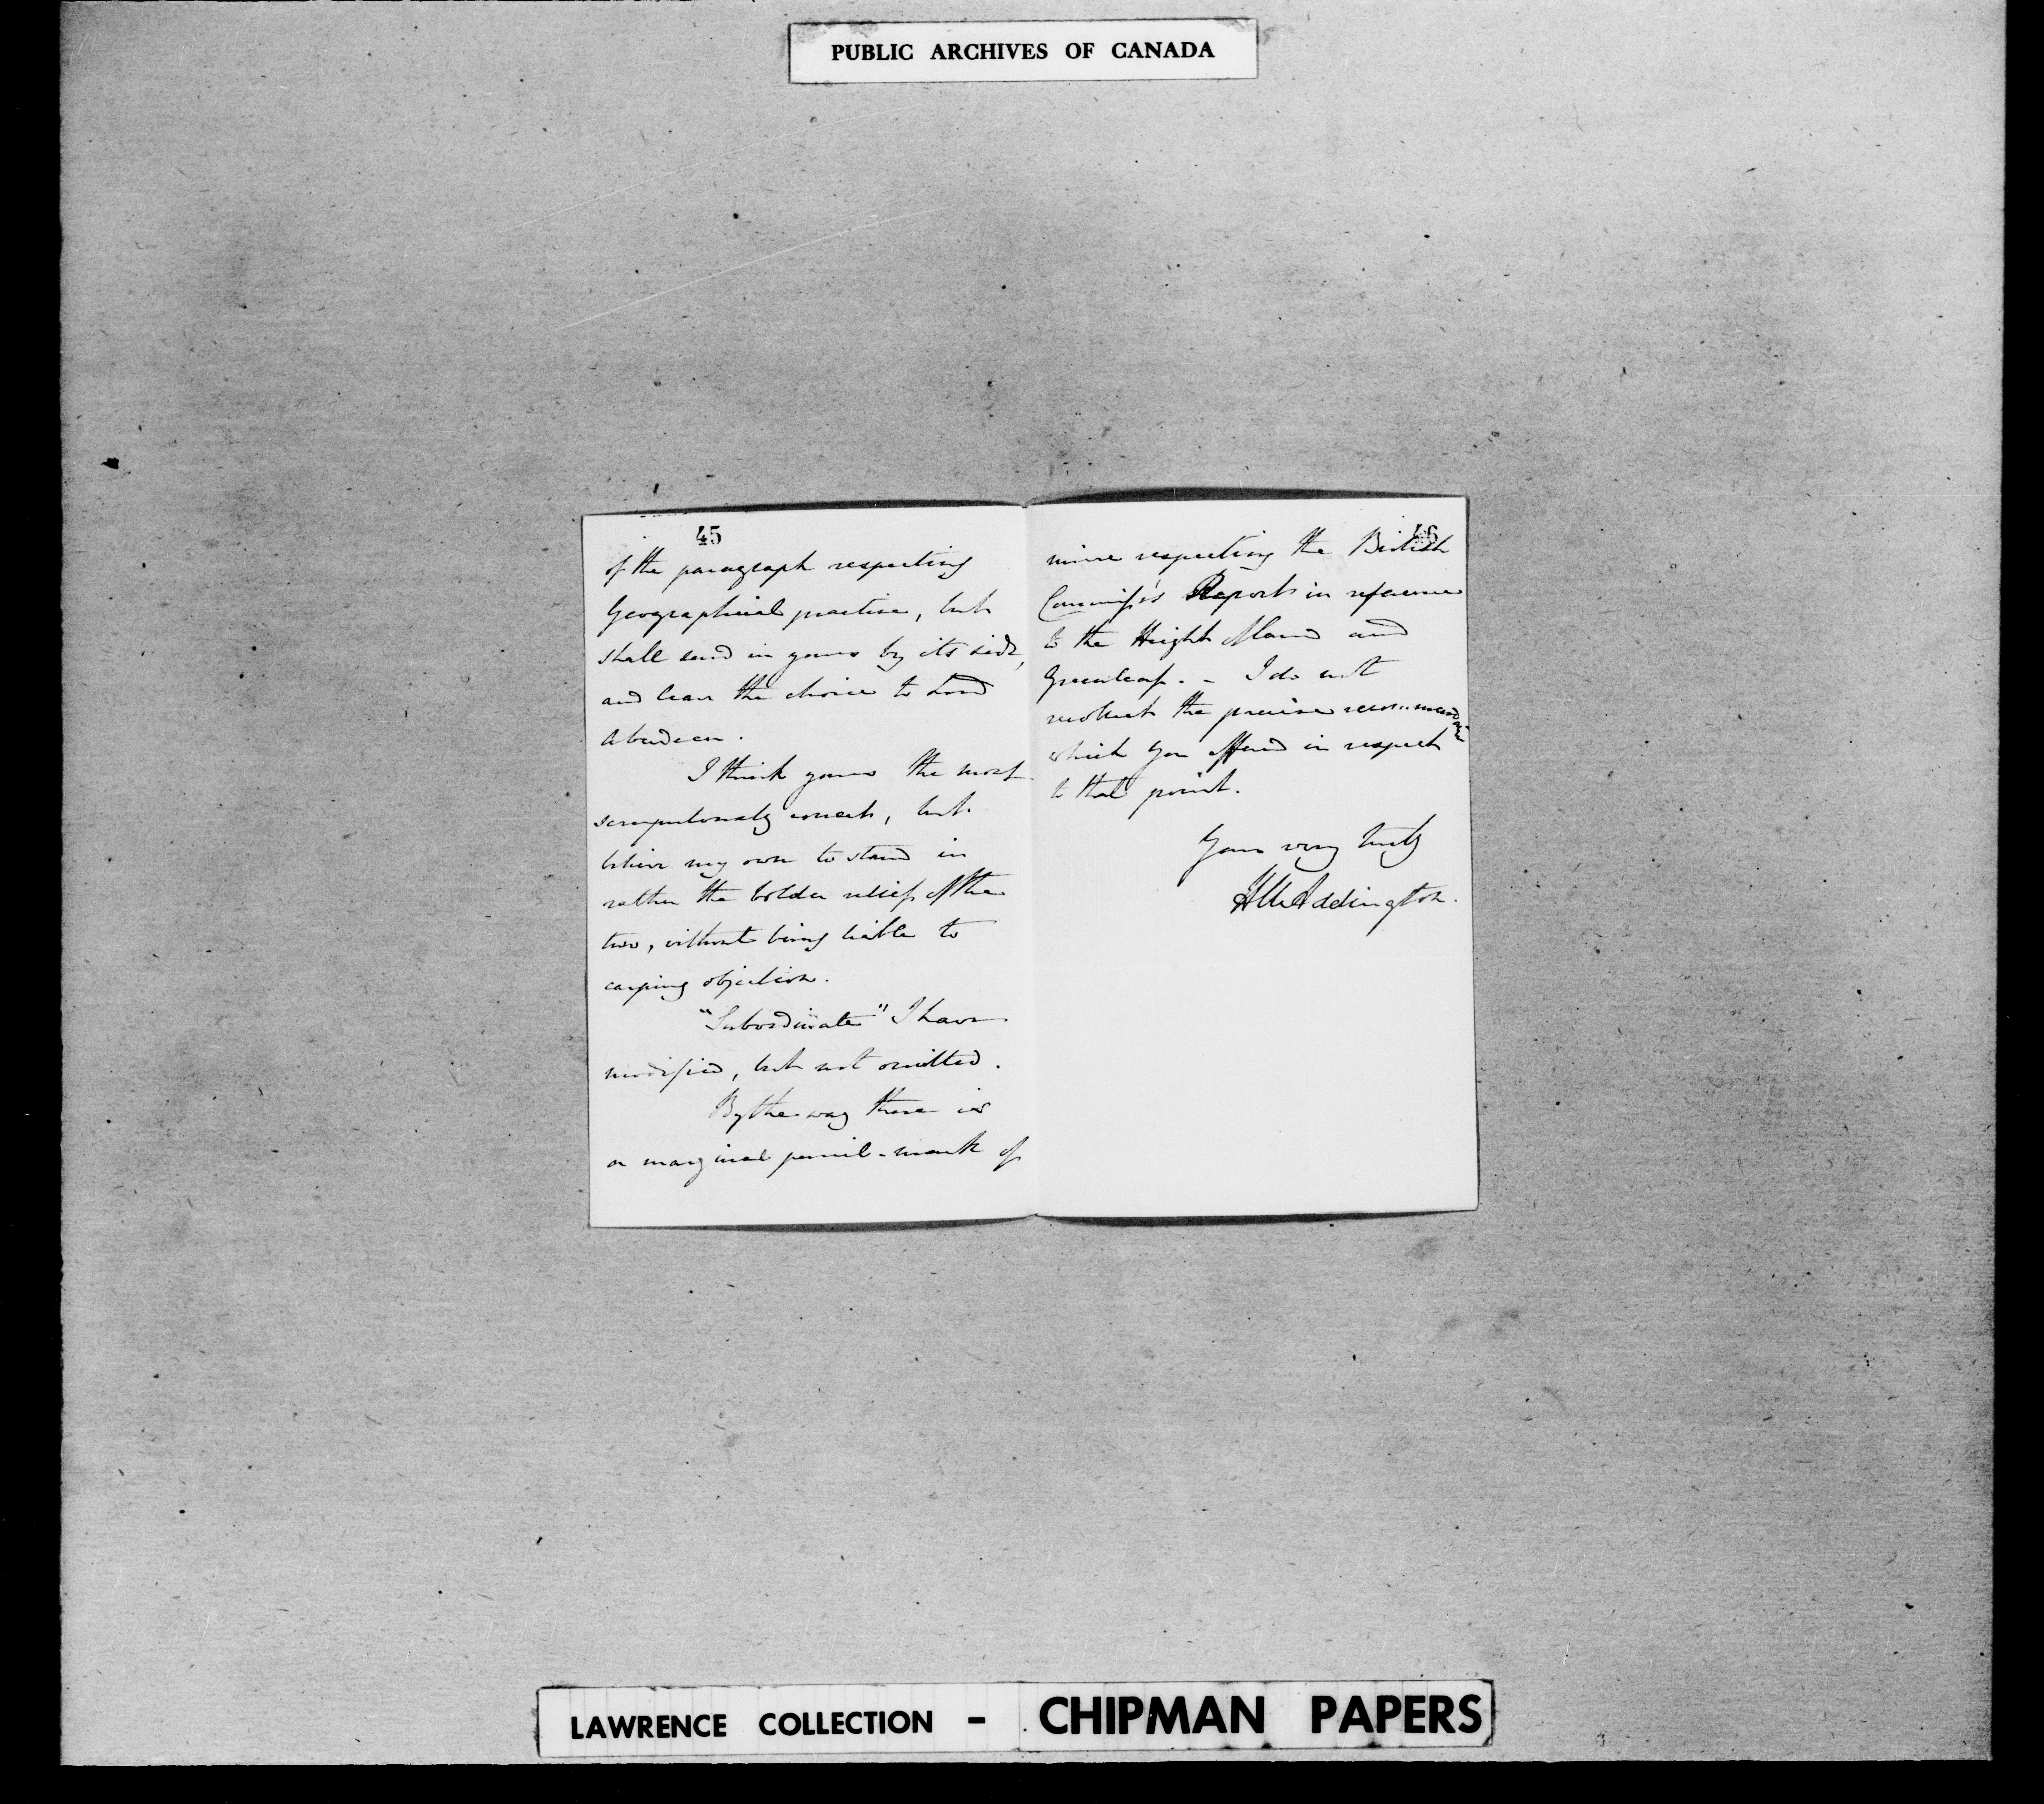 PUBLIC ARCHIVES OF CANADA
45
of the paragraph respecting
Geographical practice, but
shall send in yours by its side,
and leave the choice to Lord
Aberdeen.
I think yours the most
scrupulously correct, but
believe my own to stand in
rather the bolder relief of the
two, without being liable to
carping objection.
"Subordinate" I have
modified, but not omitted.
By the way there is
a marginal pencil-mark of
46
mine respecting the British
Commissrs Report in reference
to the Height of Land and
Greenleaf. - I do not
recollect the precise recommendation
which you offered in respect
to that point.
Yours very truly
H U Addington.
LAWRENCE COLLECTION - CHIPMAN PAPERS